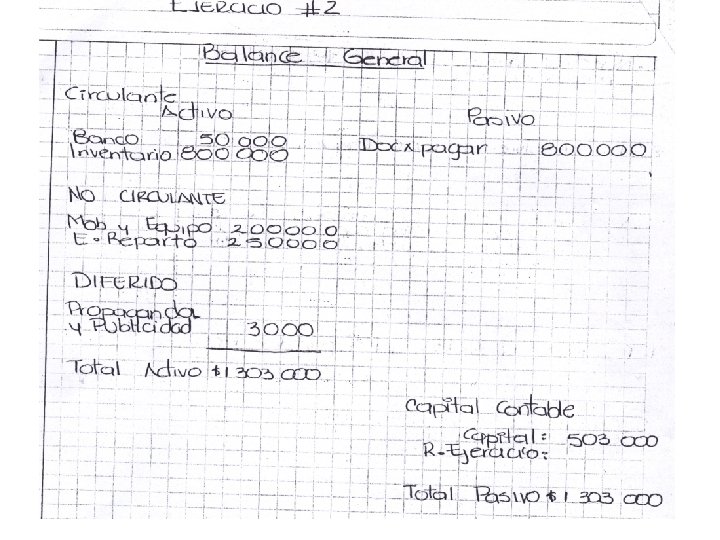 EJERCICIO #2
Balance General
Circulante
Activo
Pasivo
Banco 50 000
Inventario 800 000
Doc x pagar 800000
NO CIRCULANTE
Mob y Equipo 200000
E. Reparto 250000
DIFERIDO
Propaganda
y Publicidad 3000
Total Activo $1 303 000
Capital Contable
Capital: 503 000
R. Ejercicio:
Total Pasivo $1 303 000